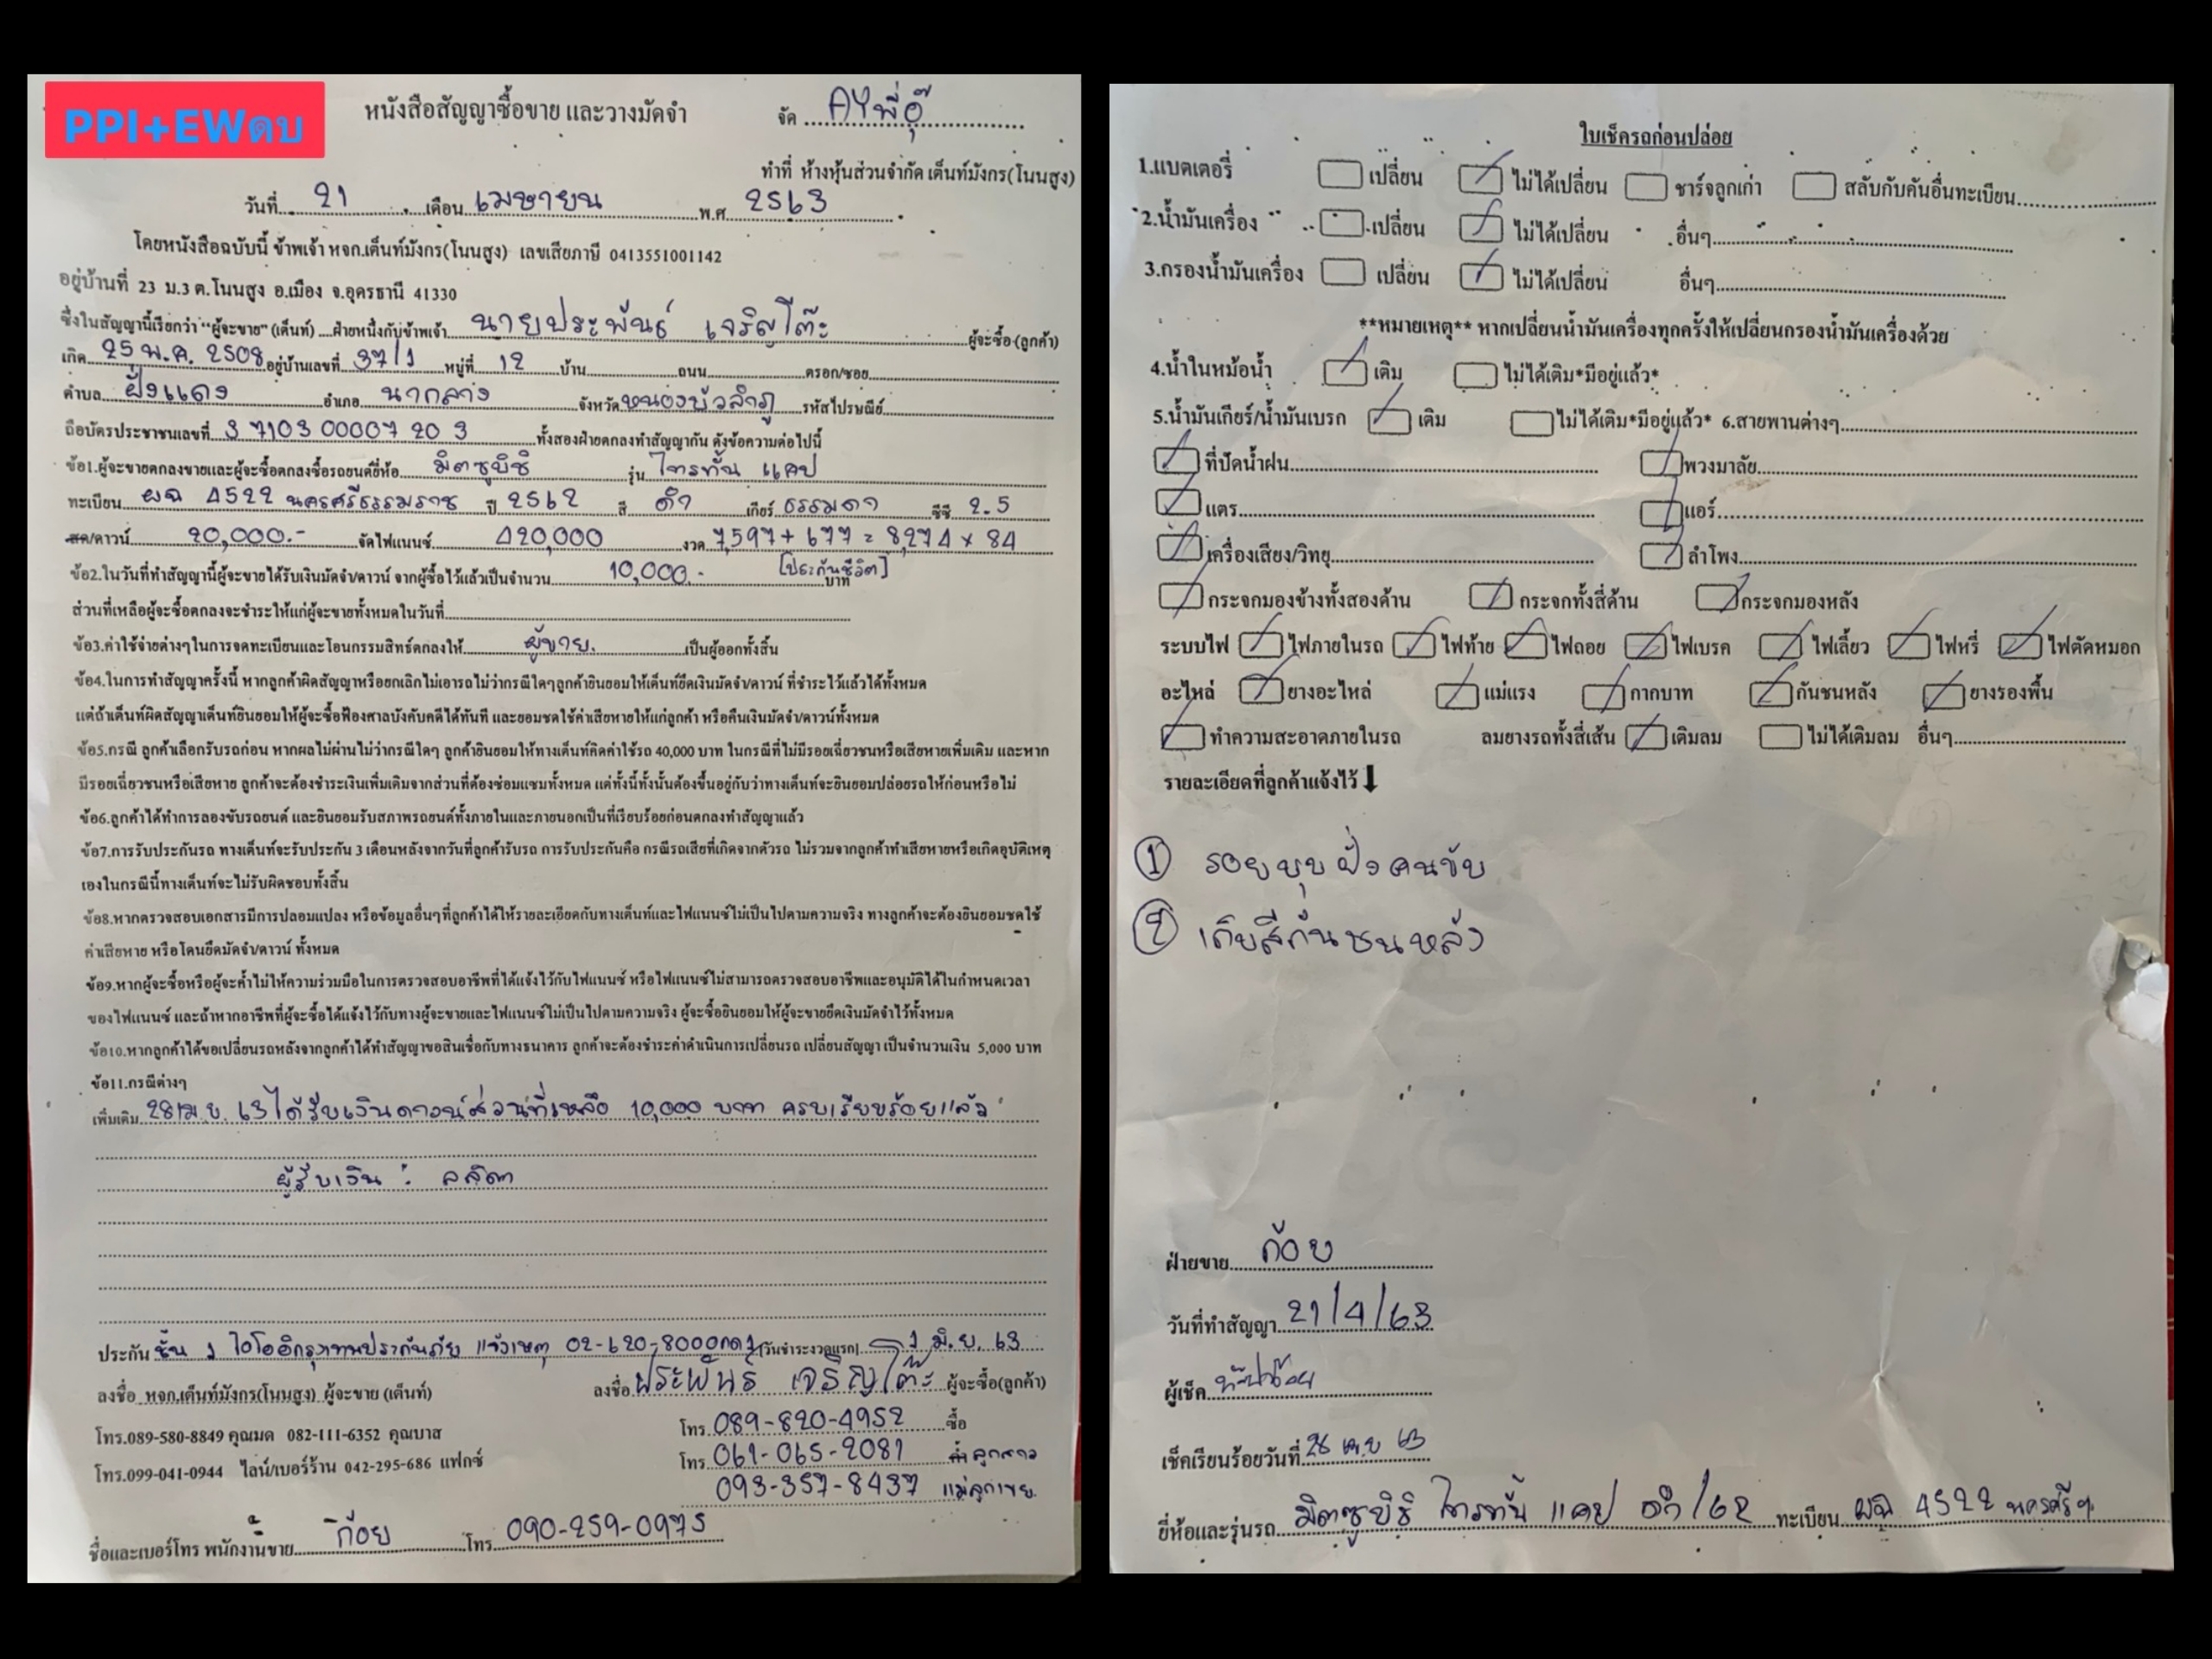 PPI+EWดบ
หนังสือสัญญาซื้อขาย และวางมัดจำ
จัด AYพี่อุ๊
ทำที่ ห้างหุ้นส่วนจำกัด เต็นท์มังกร(โนนสูง)
วันที่ 21 เดือน เมษายน พ.ศ 2563
โดยหนังสือฉบับนี้ ข้าพเจ้า หจก.เต็นท์มังกร(โนนสูง) เลขเสียภาษี 0413551001142
อยู่บ้านที่ 23 ม.3 ต.โนนสูง อ.เมือง จ.อุดรธานี 41330
ซึ่งในสัญญานี้เรียกว่า "ผู้จะขาย" (เต็นท์) ....ฝ่ายหนึ่งกับข้าพเจ้า นายประพันธ์ เจริญโต๊ะ ผู้จะซื้อ (ลูกค้า)
เกิด 25 พ.ค. 2508 อยู่บ้านเลขที่ 37/1 หมู่ที่ 12 บ้าน ถนน ตรอก/ซอย
ตำบล ฝั่งแดง อำเภอ นากลาง จังหวัด หนองบัวลำภู รหัสไปรษณีย์
ถือบัตรประชาชนเลขที่ 3 7103 00007 20 3 ทั้งสองฝ่ายตกลงทำสัญญากัน ดังข้อความต่อไปนี้
ข้อ1.ผู้จะขายตกลงขายและผู้จะซื้อตกลงซื้อรถยนต์ยี่ห้อ มิตซูบิชิ รุ่น ไทรทั้น แคป
ทะเบียน ผฉ 4522 นครศรีธรรมราช ปี 2562 สี ดำ เกียร์ ธรรมดา ซีซี 2.5
สด/ดาวน์ 20,000.- จัดไฟแนนซ์ 420,000 งวด 7,597 + 677 = 8,274 x 84
[ประกันชีวิต]
ข้อ2.ในวันที่ทำสัญญานี้ผู้จะขายได้รับเงินมัดจำ/ดาวน์ จากผู้ซื้อไว้แล้วเป็นจำนวน 10,000.- บาท
ส่วนที่เหลือผู้จะซื้อตกลงจะชำระให้แก่ผู้จะขายทั้งหมดในวันที่
ข้อ3.ค่าใช้จ่ายต่างๆในการจดทะเบียนและโอนกรรมสิทธ์ตกลงให้ ผู้ขาย. เป็นผู้ออกทั้งสิ้น
ข้อ4.ในการทำสัญญาครั้งนี้ หากลูกค้าผิดสัญญาหรือยกเลิกไม่เอารถไม่ว่ากรณีใดๆลูกค้ายินยอมให้เต็นท์ยึดเงินมัดจำ/ดาวน์ ที่ชำระไว้แล้วได้ทั้งหมด
แต่ถ้าเต็นท์ผิดสัญญาเต็นท์ยินยอมให้ผู้จะซื้อฟ้องศาลบังคับคดีได้ทันที และยอมชดใช้ค่าเสียหายให้แก่ลูกค้า หรือคืนเงินมัดจำ/ดาวน์ทั้งหมด
ข้อ5.กรณี ลูกค้าเลือกรับรถก่อน หากผลไม่ผ่านไม่ว่ากรณีใดๆ ลูกค้ายินยอมให้ทางเต็นท์คิดค่าใช้รถ 40,000 บาท ในกรณีที่ไม่มีรอยเฉี่ยวชนหรือเสียหายเพิ่มเติม และหาก
มีรอยเฉี่ยวชนหรือเสียหาย ลูกค้าจะต้องชำระเงินเพิ่มเติมจากส่วนที่ต้องซ่อมแซมทั้งหมด แต่ทั้งนี้ทั้งนั้นต้องขึ้นอยู่กับว่าทางเต็นท์จะยินยอมปล่อยรถให้ก่อนหรือไม่
ข้อ6.ลูกค้าได้ทำการลองขับรถยนต์ และยินยอมรับสภาพรถยนต์ทั้งภายในและภายนอกเป็นที่เรียบร้อยก่อนตกลงทำสัญญาแล้ว
ข้อ7.การรับประกันรถ ทางเต็นท์จะรับประกัน 3 เดือนหลังจากวันที่ลูกค้ารับรถ การรับประกันคือ กรณีรถเสียที่เกิดจากตัวรถ ไม่รวมจากลูกค้าทำเสียหายหรือเกิดอุบัติเหตุ
เองในกรณีนี้ทางเต็นท์จะไม่รับผิดชอบทั้งสิ้น
ข้อ8.หากตรวจสอบเอกสารมีการปลอมแปลง หรือข้อมูลอื่นๆที่ลูกค้าได้ให้รายละเอียดกับทางเต็นท์และไฟแนนซ์ไม่เป็นไปตามความจริง ทางลูกค้าจะต้องยินยอมชดใช้
ค่าเสียหาย หรือโดนยึดมัดจำ/ดาวน์ ทั้งหมด
ข้อ9.หากผู้จะซื้อหรือผู้จะค้ำไม่ให้ความร่วมมือในการตรวจสอบอาชีพที่ได้แจ้งไว้กับไฟแนนซ์ หรือไฟแนนซ์ไม่สามารถตรวจสอบอาชีพและอนุมัติได้ในกำหนดเวลา
ของไฟแนนซ์ และถ้าหากอาชีพที่ผู้จะซื้อได้แจ้งไว้กับทางผู้จะขายและไฟแนนซ์ไม่เป็นไปตามความจริง ผู้จะซื้อยินยอมให้ผู้จะขายยึดเงินมัดจำไว้ทั้งหมด
ข้อ10.หากลูกค้าได้ขอเปลี่ยนรถหลังจากลูกค้าได้ทำสัญญาขอสินเชื่อกับทางธนาคาร ลูกค้าจะต้องชำระค่าดำเนินการเปลี่ยนรถ เปลี่ยนสัญญา เป็นจำนวนเงิน 5,000 บาท
ข้อ11.กรณีต่างๆ
เพิ่มเติม 28 เม.ย. 63 ได้รับเงินดาวน์ส่วนที่เหลือ 10,000 บาท ครบเรียบร้อยแล้ว
ผู้รับเงิน : ลลิตา
ประกัน ชั้น 1 ไอโออิกรุงเทพประกันภัย แจ้งเหตุ 02-620-8000กด1 (วันชำระงวดแรก) 1 มิ.ย. 63
ลงชื่อ หจก.เต็นท์มังกร(โนนสูง) ผู้จะขาย (เต็นท์) ลงชื่อ ประพันธ์ เจริญโต๊ะ ผู้จะซื้อ(ลูกค้า)
โทร.089-580-8849 คุณมด 082-111-6352 คุณบาส โทร. 089-820-4952 ซื้อ
โทร.099-041-0944 ไลน์/เบอร์ร้าน 042-295-686 แฟกซ์ โทร. 061-065-2081 ค้ำ ลูกสาว
093-357-8437 แม่ลูกเขย.
ชื่อและเบอร์โทร พนักงานขาย ก้อย โทร 090-259-0975
ใบเช็ครถก่อนปล่อย
1.แบตเตอรี่ เปลี่ยน ไม่ได้เปลี่ยน ชาร์จลูกเก่า สลับกับคันอื่นทะเบียน
2.น้ำมันเครื่อง เปลี่ยน ไม่ได้เปลี่ยน อื่นๆ
3.กรองน้ำมันเครื่อง เปลี่ยน ไม่ได้เปลี่ยน อื่นๆ
**หมายเหตุ** หากเปลี่ยนน้ำมันเครื่องทุกครั้งให้เปลี่ยนกรองน้ำมันเครื่องด้วย
4.น้ำในหม้อน้ำ เติม ไม่ได้เติม*มีอยู่แล้ว*
5.น้ำมันเกียร์/น้ำมันเบรก เติม ไม่ได้เติม*มีอยู่แล้ว* 6.สายพานต่างๆ
ที่ปัดน้ำฝน พวงมาลัย
แตร แอร์
เครื่องเสียง/วิทยุ ลำโพง
กระจกมองข้างทั้งสองด้าน กระจกทั้งสี่ด้าน กระจกมองหลัง
ระบบไฟ ไฟภายในรถ ไฟท้าย ไฟถอย ไฟเบรค ไฟเลี้ยว ไฟหรี่ ไฟตัดหมอก
อะไหล่ ยางอะไหล่ แม่แรง กากบาท กันชนหลัง ยางรองพื้น
ทำความสะอาดภายในรถ ลมยางรถทั้งสี่เส้น เติมลม ไม่ได้เติมลม อื่นๆ
รายละเอียดที่ลูกค้าแจ้งไว้
① รอยบุบฝั่งคนขับ
② เก็บสีกันชนหลัง
ฝ่ายขาย ก้อย
วันที่ทำสัญญา 21/4/63
ผู้เช็ค
เช็คเรียบร้อยวันที่ 28 เมย 63
ยี่ห้อและรุ่นรถ มิตซูบิชิ ไทรทั้น แคป ดำ/62 ทะเบียน ผฉ 4522 นครศรีฯ